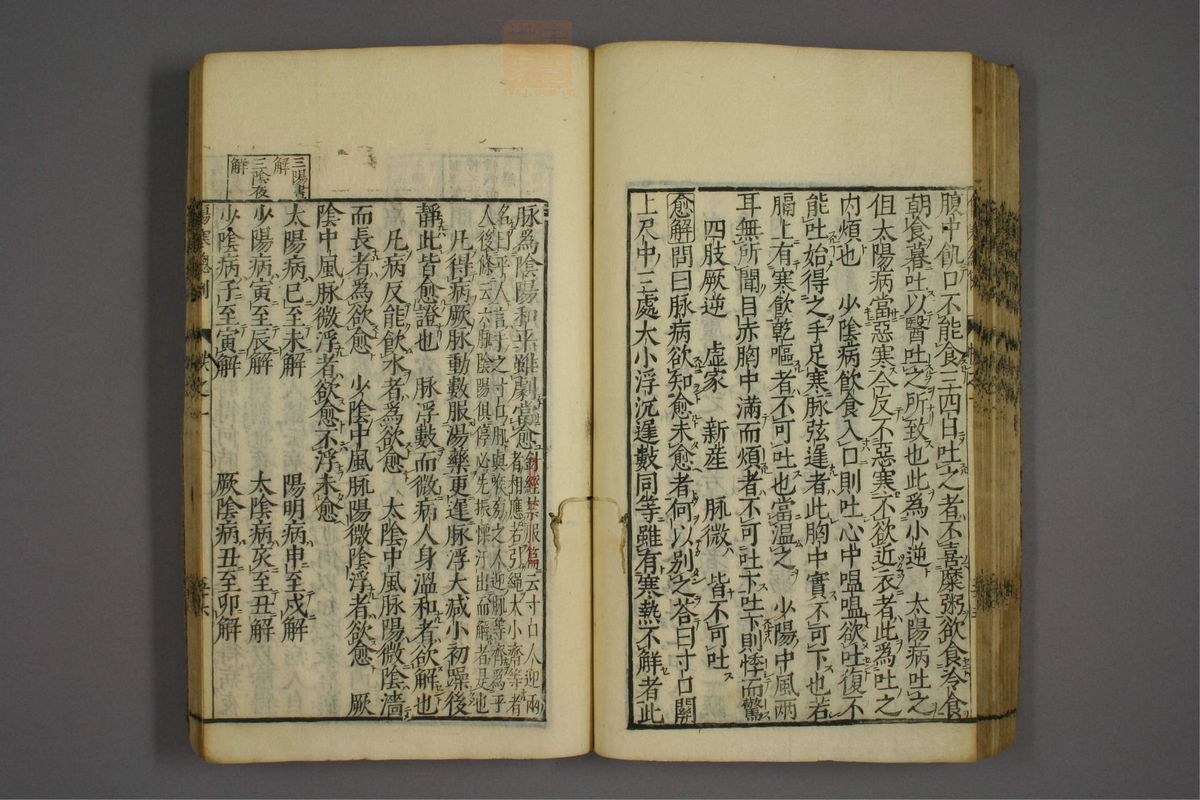 腹中飢口不能食三四日吐之者不喜糜粥欲食冷食
朝食暮吐以醫吐之所致也此爲小逆　太陽病吐之
但太陽病當惡寒今反不惡寒不欲近衣者此爲吐之
内煩也　少陰病飲食入口則吐心中嗢嗢欲吐復不
能吐始得之手足寒脉弦遲者此胸中實不可下也若
膈上有寒飲乾嘔者不可吐也當温之　少陽中風兩
耳無所聞目赤胸中滿而煩者不可吐下吐下則悸而驚
四肢厥逆　虚家　新産　脉微　皆不可吐
愈解問曰脉病欲知愈未愈者何以别之荅曰寸口關
上尺中三處大小浮沉遲數同等雖有寒熱不解者此
脉爲陰陽和平雖劇當愈
針經禁服篇云寸口人迎兩
者相應若引繩大小齊等者
名曰平人
人後條云六脉陰陽俱停必先振慄汗出而解者是也
凡得病厥脉動數服湯藥更遲脉浮大减小初躁後
靜此皆愈證也　脉浮數而微病人身温和者欲解也
凡病反能飲水者爲欲愈　太陰中風脉陽微陰濇
而長者爲欲愈　少陰中風脉陽微陰浮者欲愈　厥
陰中風脉微浮者欲愈不浮未愈
三陽晝
解
三陰夜
解
太陽病巳至未解　陽明病申至戌解
少陽病寅至辰解　太陰病亥至丑解
少陰病子至寅解　厥陰病丑至卯解
傷寒總例